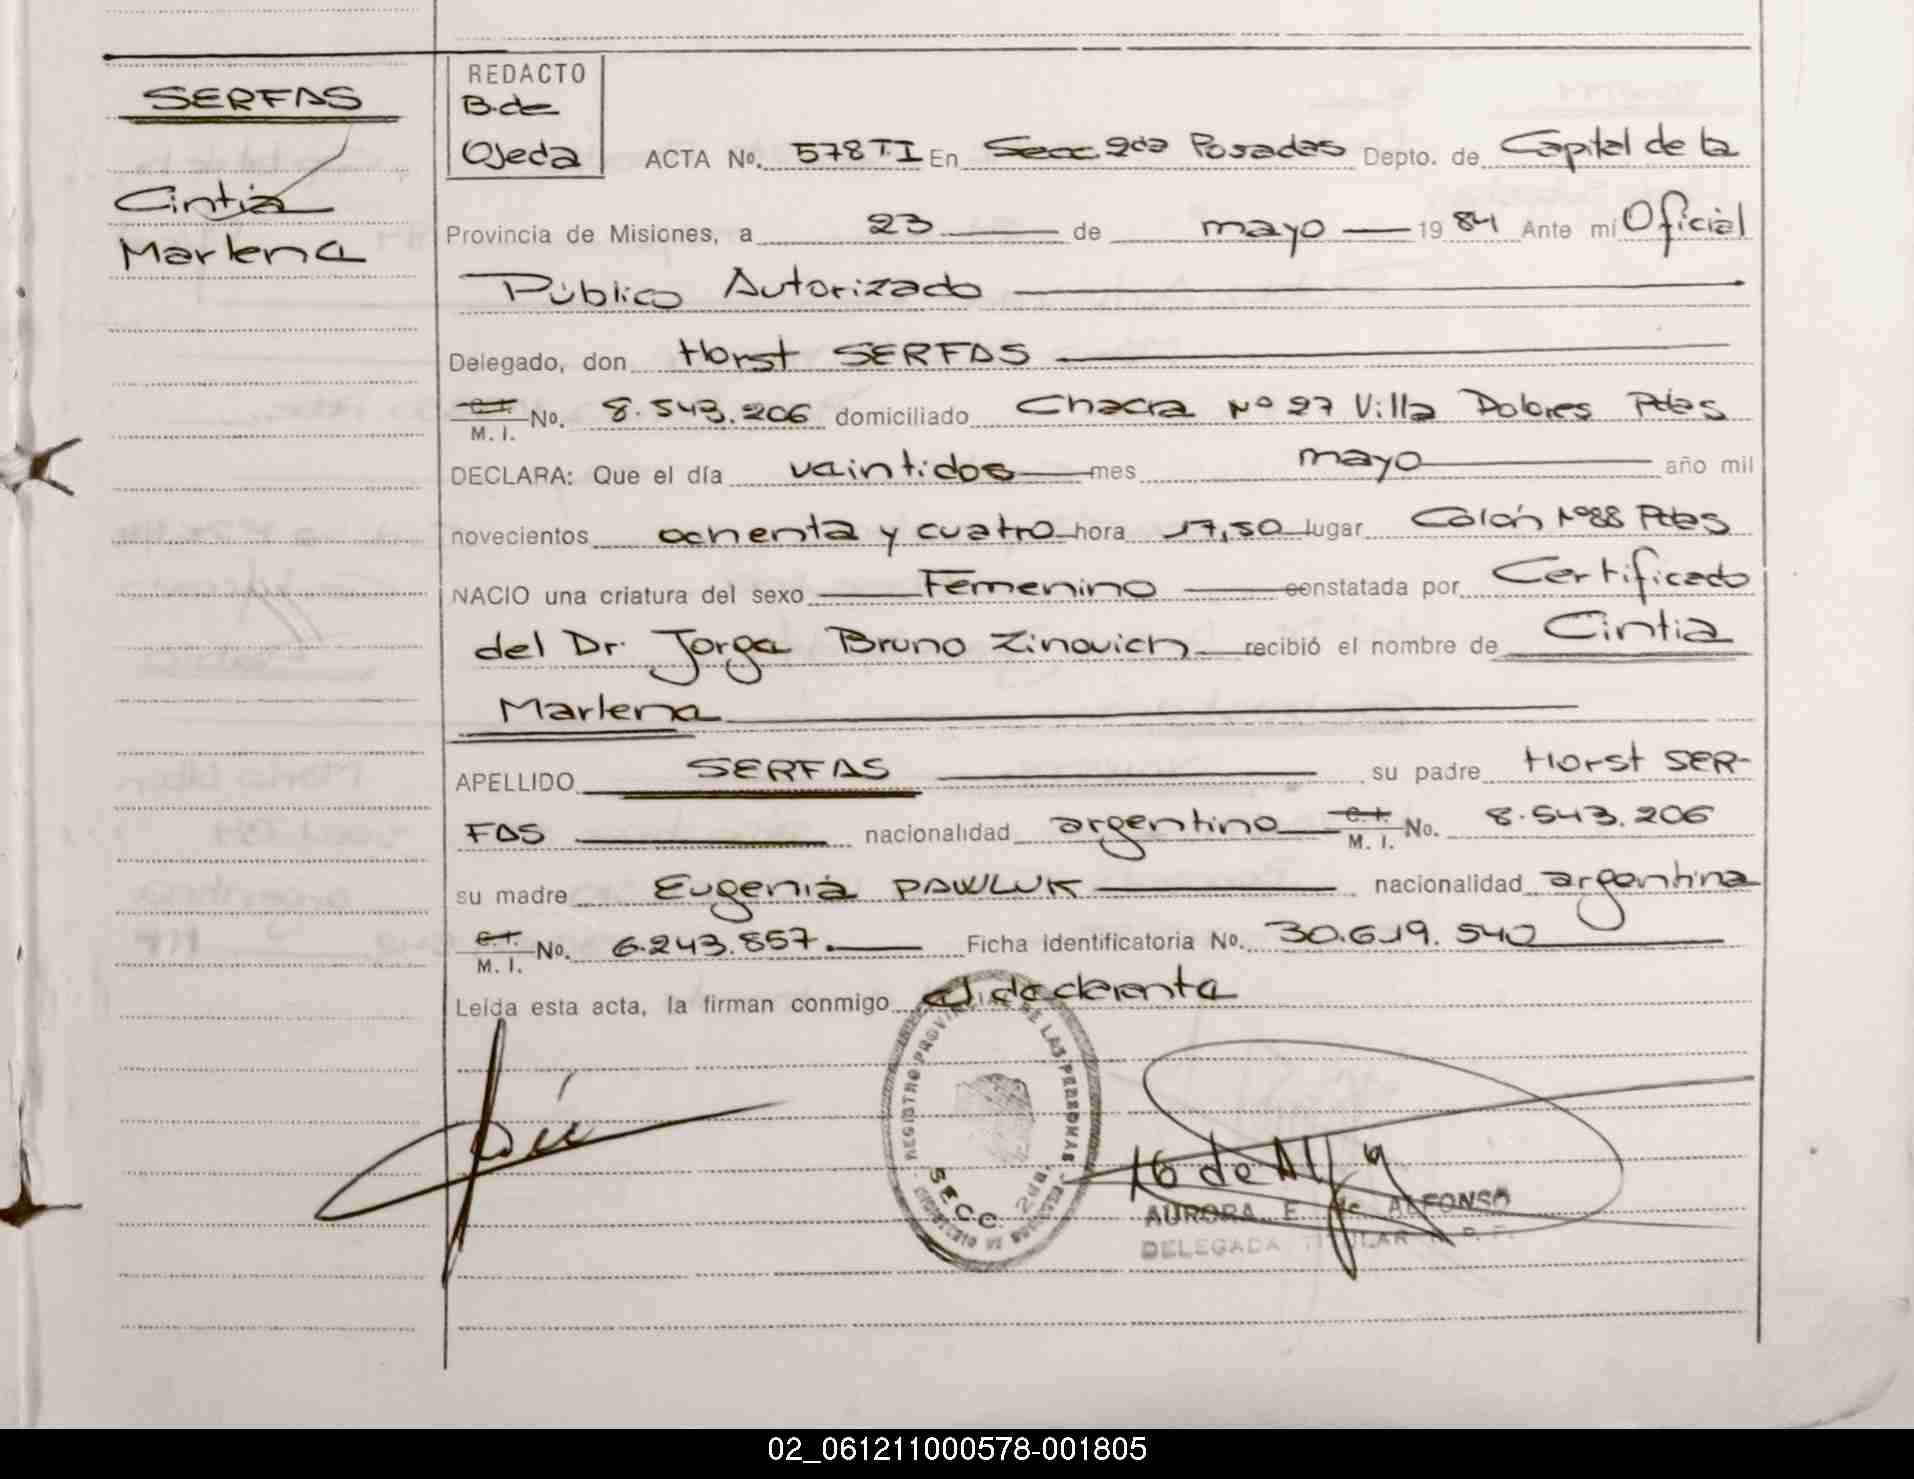 SERFAS
Cintia
Marlena
REDACTO
B. de
Ojeda
ACTA No. 578 T I En Secc. 2da Posadas Depto. de Capital de la
Provincia de Misiones, a 23 de mayo 1984 Ante mí Oficial
Público Autorizado
Delegado, don Horst SERFAS
C.I. M. I. No. 8.543.206 domiciliado Chacra Nº 27 Villa Dolores Pdas
DECLARA: Que el día vaintidos mes mayo año mil
novecientos ochenta y cuatro hora 17,50 lugar Colón Nº 88 Pdas
NACIO una criatura del sexo Femenino constatada por Certificado
del Dr. Jorge Bruno Zinovich recibió el nombre de Cintia
Marlena
APELLIDO SERFAS su padre Horst SER-
FAS nacionalidad argentino C.I. M. I. No. 8.543.206
su madre Eugenia PAWLUK nacionalidad argentina
C.I. M. I. No. 6.243.857. Ficha identificatoria No. 30.619.540
Leída esta acta, la firman conmigo el declarante
REGISTRO PROVINCIAL DE LAS PERSONAS
SECC. 2da.
AURORA E. de ALFONSO
DELEGADA TITULAR R. P. P.
02_061211000578-001805